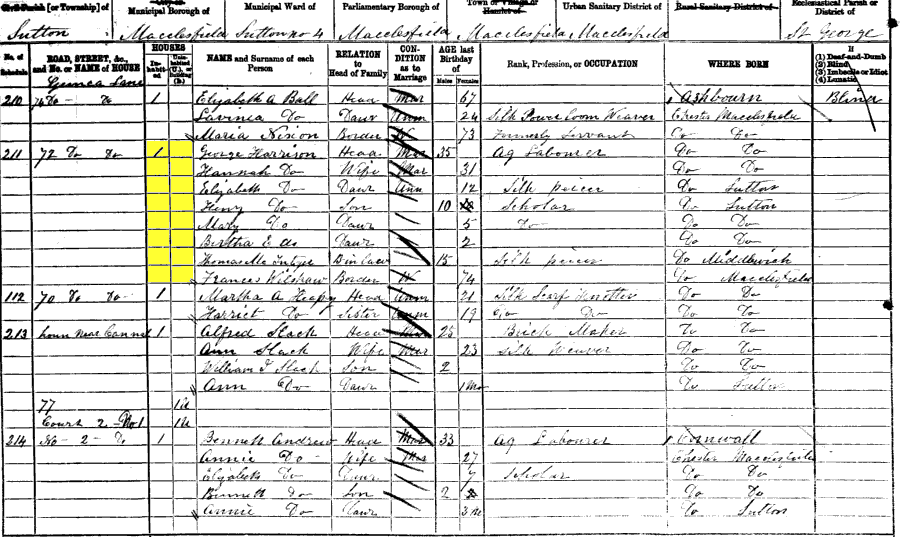 Civil Parish [or Township] of City or Municipal Borough of Municipal Ward of Parliamentary Borough of Town or Village or District of Urban Sanitary District of Rural Sanitary District of Ecclesiastical Parish or District of
Sutton Macclesfield Sutton no 4 Macclesfield Macclesfield Macclesfield St George
No. of Schedule ROAD, STREET, &c., and No. or NAME of HOUSE HOUSES Inhabited Uninhabited (U.), or Building (B.) NAME and Surname of each Person RELATION to Head of Family CONDITION as to Marriage AGE last Birthday of Males Females Rank, Profession, or OCCUPATION WHERE BORN If (1) Deaf-and-Dumb (2) Blind (3) Imbecile or Idiot (4) Lunatic
Gunea Lane
210 74 Do Do 1 Elizabeth A Ball Head Mar 67 Ashbourn Blind
Lavinea Do Daur Unm 24 Silk Power Loom Weaver Chester Macclesfield
Maria Nixon Border W 73 Formerly Servant Do Do
211 72 Do Do 1 George Harrison Head Mar 35 Ag Labourer Do Do
Hannah Do Wife Mar 31 Do Do
Elizabeth Do Daur Unm 12 Silk piecer Do Sutton
Heny Do Son 10 Scholar Do Sutton
Mary Do Daur 5 Do Do Do
Bertha E do Daur 2 Do Do
Thomas Mc 15 Silk piecer Do Middlewich
Frances Wilshaw Border W 74 Do Macclesfield
112 70 Do Do 1 Martha A Heapy Head Unm 21 Silk Scarf Knotter Do Do
Harriet Do Sister Unm 19 Do Do Do Do
213 1 Alfred Slack Head Mar 25 Brick Maker Do Do
Ann Slack Wife Mar 23 Silk Weaver Do Do
William F Slack Son 2 Do Do
Ann Do Daur 1 Mo Do Sutton
77
Court 2 - No 1
214 No - 2 - Do 1 Bennett Andrew Head Mar 33 Ag Labourer Cornwall
Annie Do Wife Mar 27 Chester Macclesfield
Elizabeth Do Daur 7 Scholar Do Do
Bennett Do Son 2 Do Do
Annie Do Daur 3 M Do Sutton